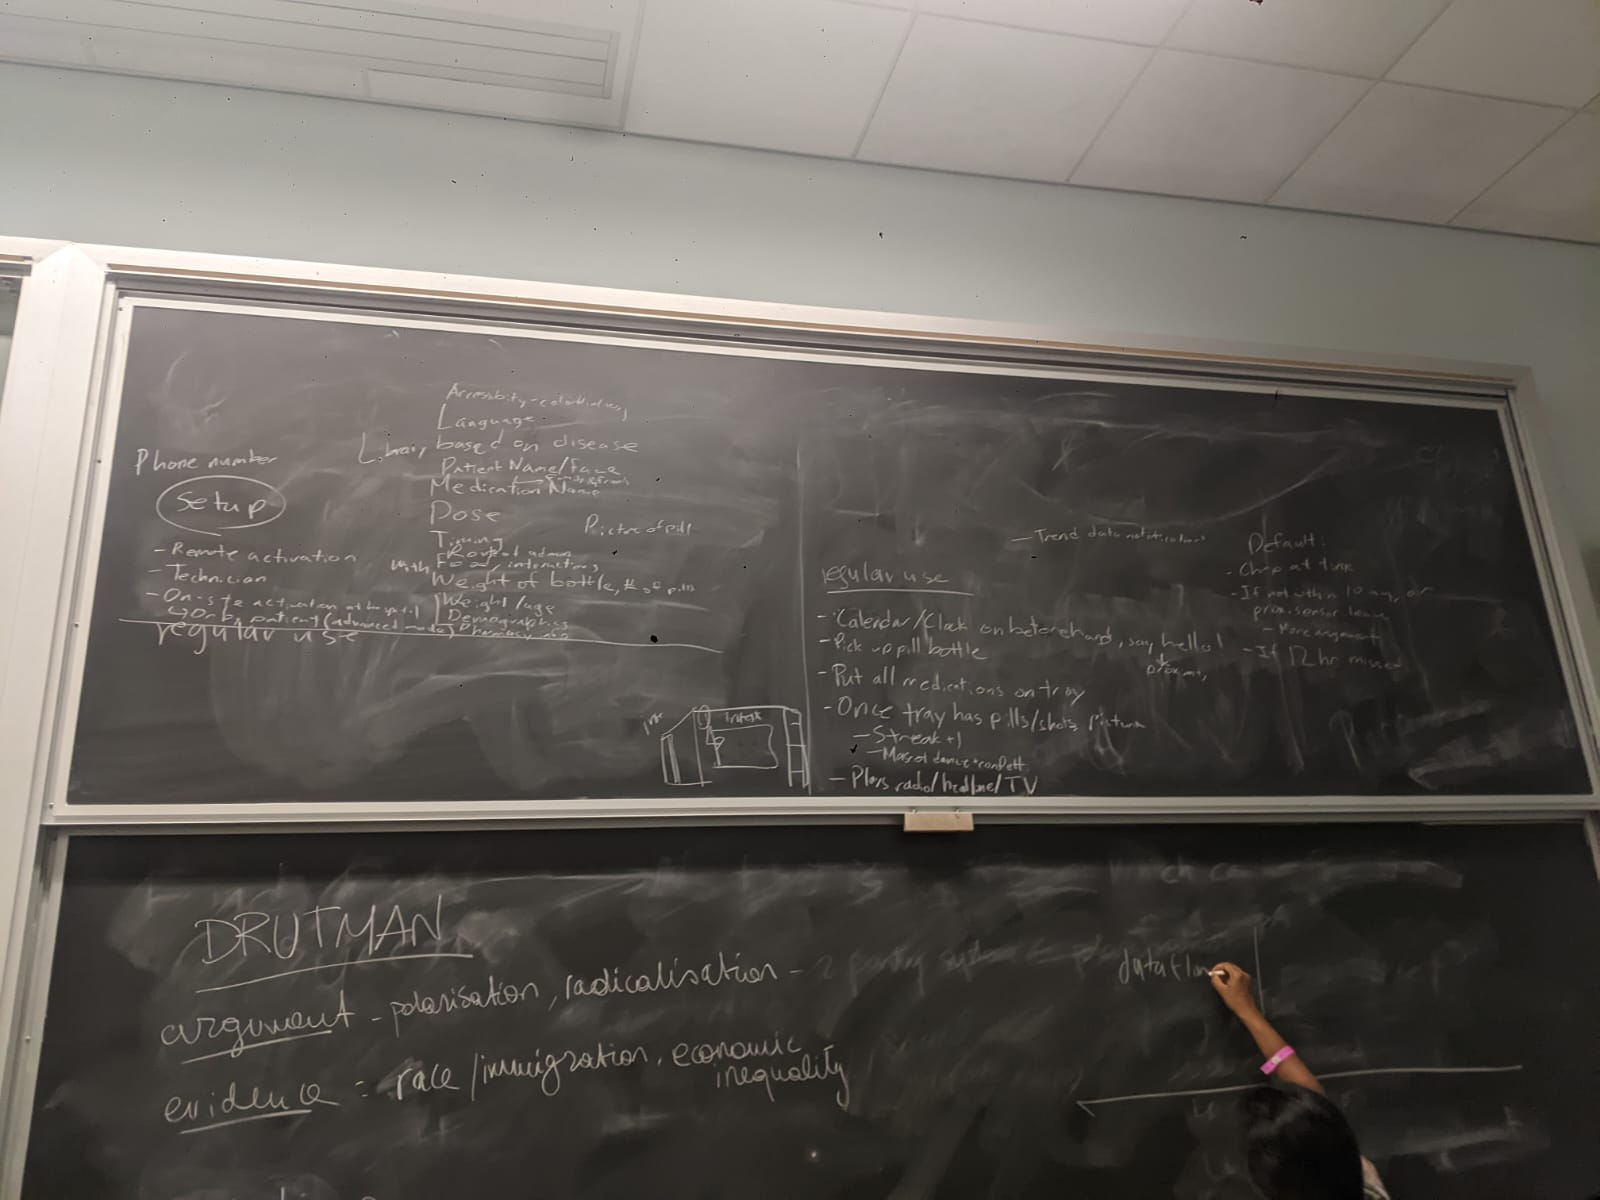 Phone number
Setup
- Remote activation
- Technician
- On-site activation at hospital
↳ Or by patient (advanced mode)
regular use
Accessibity - colorblindness
Language
Library based on disease
Patient Name/Face
Medication Name
Dose
Picture of pill
Timing
Route of admin
With Food, interactions
Weight of bottle, # of pills
Weight/age
Demographics
Pharmacy info
- Trend data notifications
regular use
- Calendar/Clock on beforehand, say hello!
- Pick up pill bottle
- Put all medications on tray
- Once tray has pills/shots, picture
- Streak +1
- Mascot dance + confetti
- Plays radio/headline/TV
Default:
- Chirp at time
- If not within 10 min, or
prox. sensor leaving
- More argument
- If 12 hr missed
DRUTMAN
argument - polarisation, radicalisation - 2 party system
evidence = race/immigration, economic
inequality
dataflow